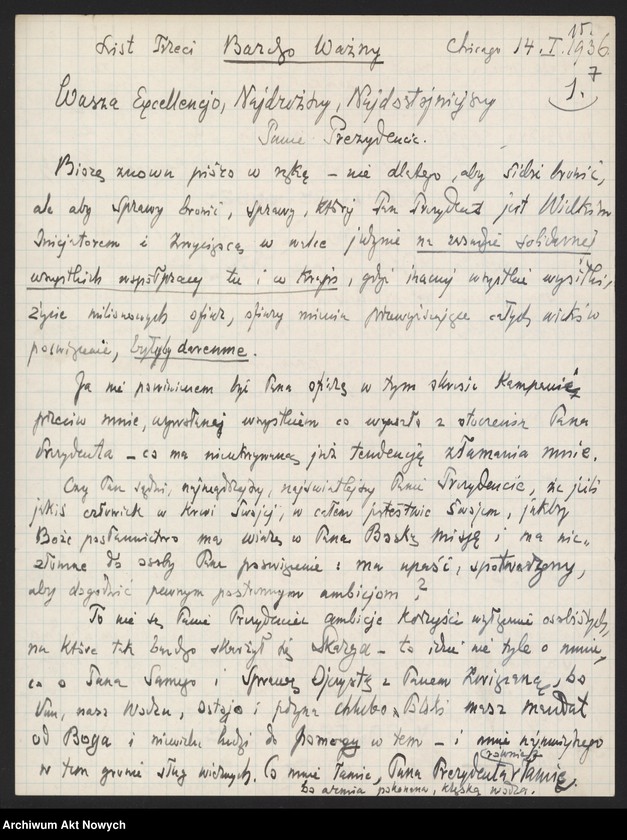 List Trzeci Bardzo Ważny Chicago 14.I.1936
15.
7
1.
Wasza Excellencjo, Najdroższy, Najdostojniejszy
Panie Prezydencie.
Biorę znowu pióro w rękę – nie dlatego, aby siebie bronić,
ale aby sprawy bronić, sprawy, której Pan Prezydent jest Wielkim
Inicjatorem i Zwycięzcą w walce jedynie na zasadzie solidarnej
wszystkich współpracy tu i w Kraju, gdyż inaczej wszystkie wysiłki,
życie milionowych ofiar, ofiary mienia całych wieków
poświęcenie, byłyby daremne.
Ja nie powinienem być Pana ofiarą w tym okresie Kampanii
przeciw mnie, wszystkiem co wyszło z otoczenia Pana
Prezydenta – co ma nieukrywaną już tendencję złamania mnie.
Czy Pan sądzi, najmądrzejszy, najświatlejszy Panie Prezydencie, że jeśli
jakiś człowiek w Krwi Swojej, w całem jestestwie Swojem, jakby
Boże posłannictwo ma wiarę w Pana Boską misję i ma nie-
złomne do osoby Pana poświęcenie: ma upaść, spotwarzony,
aby dogodzić pewnym postronnym ambicjom?
To nie są Panie Prezydencie ambicje korzyści wyłącznie osobistych,
na które tak bardzo skarżył się Skarga – tu idzie nie tyle o mnie,
co o Pana Samego i Sprawę Ojczyzny z Panem Związaną, bo
Ty, nasz Wodzu, ostojo i jedyna chlubo Polski masz mandat
od Boga i niewielu ludzi do pomocy w tem – i mnie najmniejszego
również
w tem gronie sług wiernych. Co mnie łamie, Pana Prezydenta łamie.
bo armia pokonana, klęską wodza.
Archiwum Akt Nowych